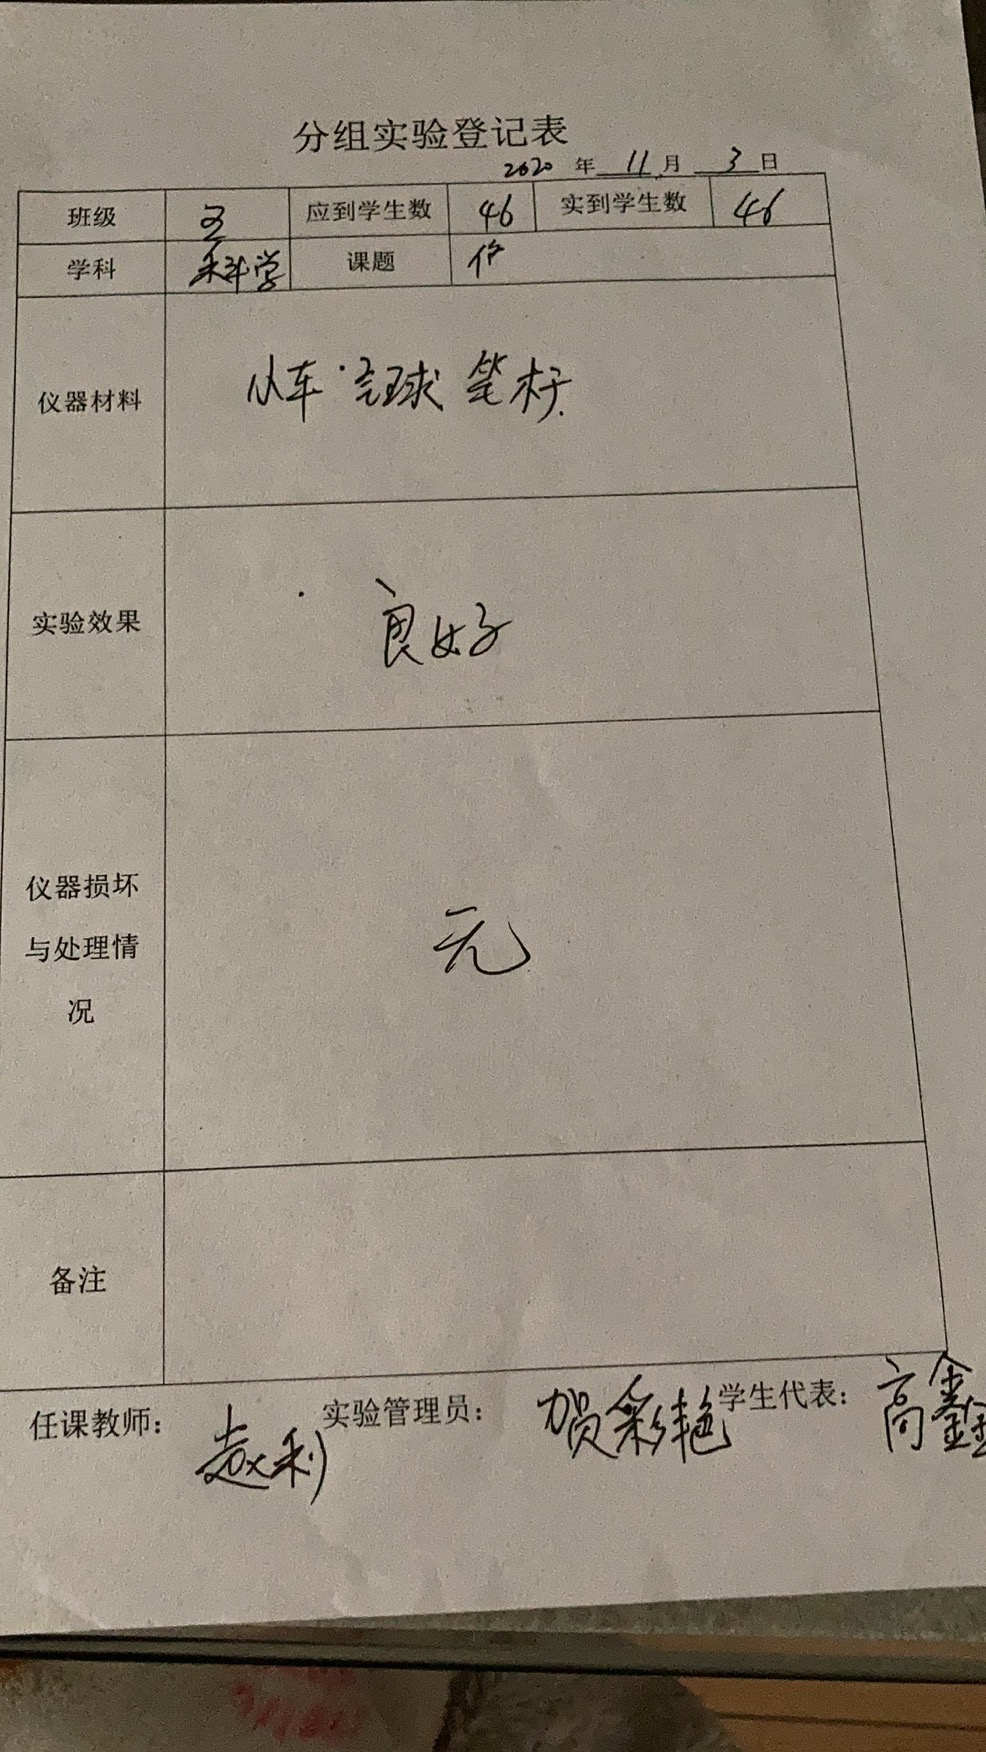 分组实验登记表
2020 年 11 月 3 日
班级 五 应到学生数 46 实到学生数 46
学科 科学 课题
仪器材料 小车 气球 笔杆
实验效果 良好
仪器损坏与处理情况 无
备注
任课教师: 赵利 实验管理员: 贺彩艳 学生代表: 高鑫